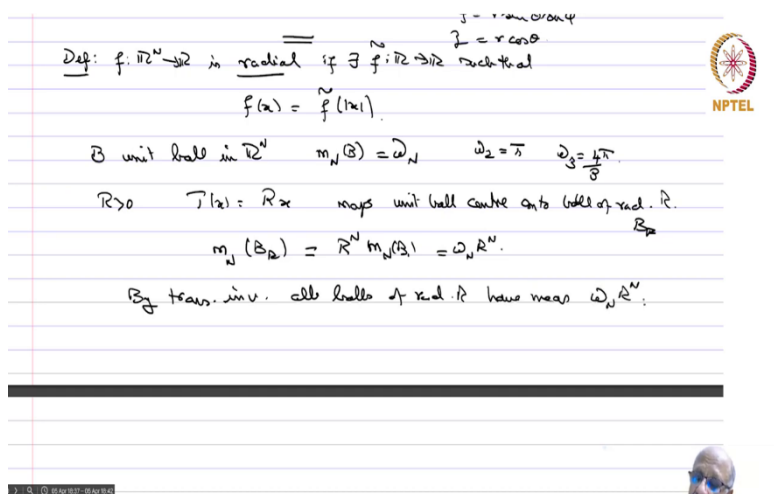 z = r cosθ
Def: f: ℝᴺ→ℝ is radial if ∃ f̃: ℝ→ℝ such that
f(x) = f̃(|x|).
NPTEL
B unit ball in ℝᴺ m_N(B) = ω_N ω₂ = π ω₃ = 4π/3.
R>0 T(x) = Rx maps unit ball centre onto ball of rad. R.
B_R
m_N(B_R) = Rᴺ m_N(B₁) = ω_N Rᴺ.
By trans. inv. all balls of rad. R have meas ω_N Rᴺ.
05 Apr 18:37 - 05 Apr 18:42